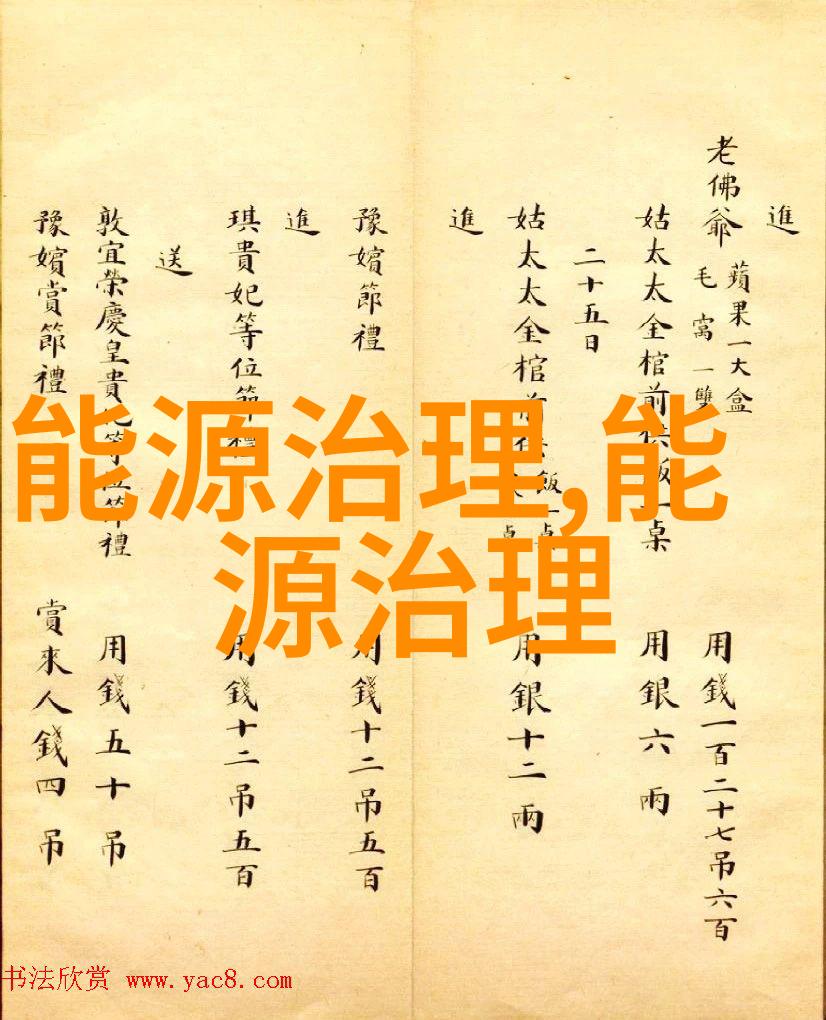 進
老佛爺 蘋果一大盒
毛窩一雙
用錢一百二十七吊六百
姑太太金棺前供飯一桌 用銀六兩
二十五日
姑太太金棺前 飯一桌
桌
用銀十二兩
進
豫嬪節禮 用錢十二吊五百
進
琪貴妃等位節禮 用錢十二吊五百
送
敦宜榮慶皇貴妃等位節禮 用錢五十吊
豫嬪賞節禮 賞來人錢四吊
能源治理,能
源治理
书法欣赏 www.yac8.com